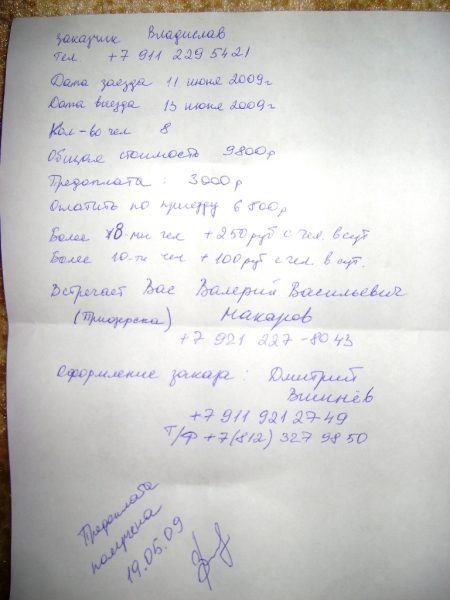 Заказчик Владислав
Тел. +7 911 229 5421
Дата заезда 11 июня 2009г
Дата выезда 13 июня 2009г
Кол-во чел 8
Общая стоимость 9800р
Предоплата: 3000р
Оплатить по приезду 6800р
Более 8-ми чел +250руб с чел. в сут
Более 10-ти чел +100руб с чел. в сут.
Встречает Вас Валерий Васильевич
(Приозерска) Макаров
+7 921 227-8043
Оформление заказа: Дмитрий
Вишнёв
+7 911 921 27 49
Т/Ф +7(812) 327 98 50
Предоплата
получена
19.05.09